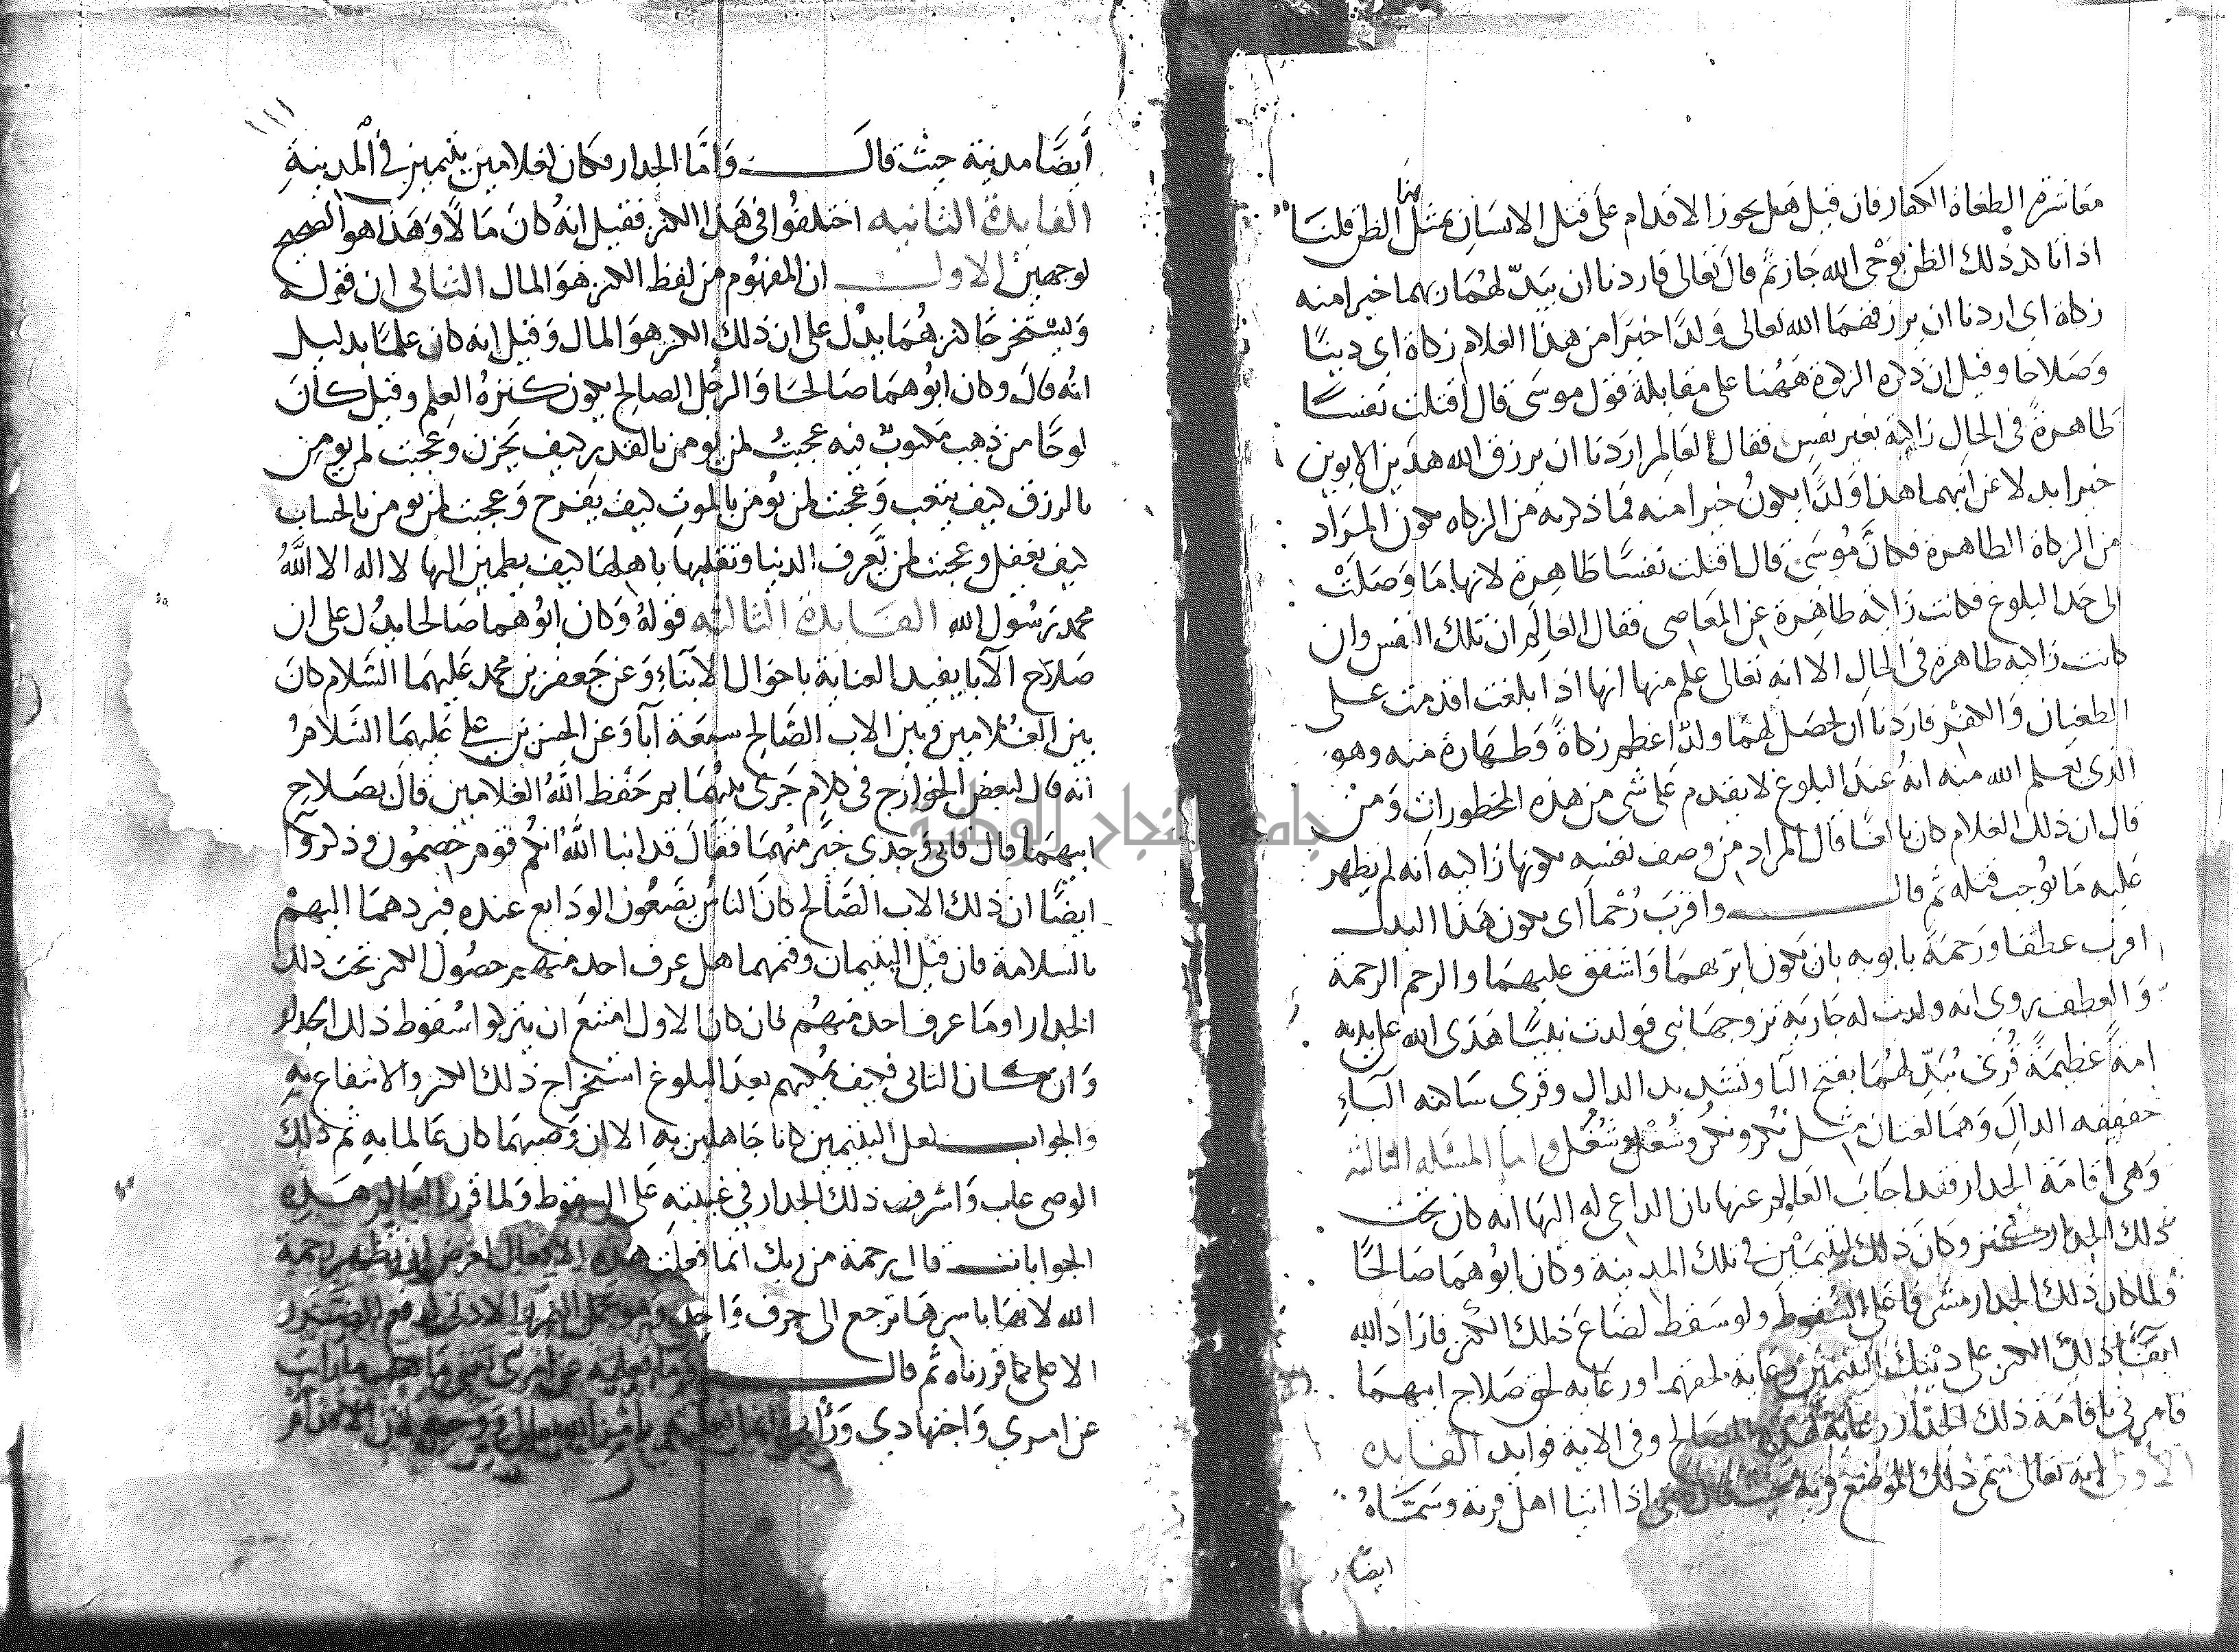 معاشرة الطغاة الكفار فان قيل هل يجوز الاقدام على قتل الانسان بمثل هذا الظن قلنا
اذا تاكد ذلك الظن بوحى الله جاز ثم قال تعالى فاردنا ان يبدلهما ربهما خيرا منه
زكاة اى اردنا ان يرزقهما الله تعالى ولدا خيرا من هذا الغلام زكاة اى دينا
وصلاحا وقيل ان ذكره الزكوة ههنا على مقابلة قول موسى قال اقتلت نفسا
طاهرة فى الحال زاكية بغير نفس فقال العالم اردنا ان يرزق الله هذين الابوين
خيرا بدلا عن ابنهما هذا ولدا يكون خيرا منه فما ذكرته من الزكاه يكون المراد
من الزكاة الطاهرة فكان موسى قال اقتلت نفسا طاهرة لانها ما وصلت
الى حد البلوغ فكانت زاكية طاهرة عن المعاصى فقال العالم ان تلك النفس وان
كانت زاكيه طاهرة فى الحال الا انه تعالى علم منها انها اذا بلغت اقدمت على
الطغيان والكفر فاردنا ان يحصل لهما ولدا اعظم زكاة وطهارة منه وهو
الذى يعلم الله منه انه عند البلوغ لا يقدم على شى من هذه المحظورات ومن
قال ان ذلك الغلام كان بالغا قال المراد من وصف نفسه بكونها زاكيه انه لم يظهر
عليه ما يوجب قتله ثم قال واقرب رحما اى يكون هذا البدل
اقرب عطفا ورحمة بابويه بان يكون ابر بهما واشفق عليهما والرحم الرحمة
والعطف روى انه ولدت له جارية تزوجها نبى فولدت نبيا هدى الله على يديه
امة عظيمة قرى يبدلهما بفتح البا وتشديد الدال وقرى ساكنه الباء
خفيفه الدال وهما لغتان مثل نكر ونكر وشغل وشغل واما المسئله الثالثه
وهى اقامة الجدار فقد اجاب العالم عنها بان الداعى له اليها انه كان تحت
ذلك الجدار كنز وكان ذلك ليتيمين فى تلك المدينة وكان ابوهما صالحا
ولما كان ذلك الجدار مشرفا على السقوط ولو سقط لضاع ذلك الكنز فاراد الله
ابقا ذلك الكنز على ذينك اليتيمين رعاية لحقهما ورعايه لحق صلاح ابيهما
فامرنى باقامة ذلك الجدار رعاية لهذه المصالح وفى الاية فوايد الفايده
الاولى انه تعالى سمى ذلك الموضع قرية حيث قال حتى اذا اتيا اهل قرية وسماه
ايضا
١١١
ايضا مدينة حيث قال واما الجدار فكان لغلامين يتيمين فى المدينة
الفايدة الثانيه اختلفوا فى هذا الكنز فقيل انه كان مالا وهذا هو الصحيح
لوجهين الاول ان المفهوم من لفظ الكنز هو المال الثانى ان قوله
ويستخرجا كنزهما يدل على ان ذلك الكنز هو المال وقيل انه كان علما بدليل
انه قال وكان ابوهما صالحا والرجل الصالح يكون كنزه العلم وقيل كان
لوحا من ذهب مكتوب فيه عجبت لمن يومن بالقدر كيف يحزن وعجبت لمن يومن
بالرزق كيف يتعب وعجبت لمن يومن بالموت كيف يفرح وعجبت لمن يومن بالحساب
كيف يغفل وعجبت لمن يعرف الدنيا وتقلبها باهلها كيف يطمين اليها لا اله الا الله
محمد رسول الله الفايدة الثالثه قوله وكان ابوهما صالحا يدل على ان
صلاح الابا يفيد العناية باحوال الابناء وعن جعفر بن محمد عليهما السلام كان
بين الغلامين وبين الاب الصالح سبعة آبا وعن الحسن بن على عليهما السلام
انه قال لبعض الخوارج فى كلام جرى بينهما بم حفظ الله الغلامين قال بصلاح
ابيهما قال فابى وجدى خير منهما فقال قد انبا الله انكم قوم خصمون وذكروا
ايضا ان ذلك الاب الصالح كان الناس يضعون الودايع عنده فيردهما اليهم
بالسلامة فان قيل اليتيمان وقيمهما هل عرف احد منهم حصول الكنز تحت ذلك
الجدار او ما عرف احد منهم فان كان الاول امتنع ان يتركوا سقوط ذلك الجدار
وان كان الثانى فكيف يمكنهم بعد البلوغ استخراج ذلك الكنز والانتفاع به
والجواب لعل اليتيمين كانا جاهلين به الا ان وصيهما كان عالما به ثم ذلك
الوصى غاب واشرف ذلك الجدار فى غيبته على السقوط ولما قرر العالم هذه
الجوابات قال رحمة من ربك انما فعلت هذه الافعال لغرض ان تظهر رحمة
الله لانها باسرها ترجع الى حرف واحد وهو تحمل الضرر الادنى لدفع الضرر
الاعلى كما قررناه ثم قال وما فعلته عن امرى يعنى ما فعلت ما رايت
عن امرى واجتهادى ورأيى وانما فعلته بامر الله ووحيه لان الاقدام